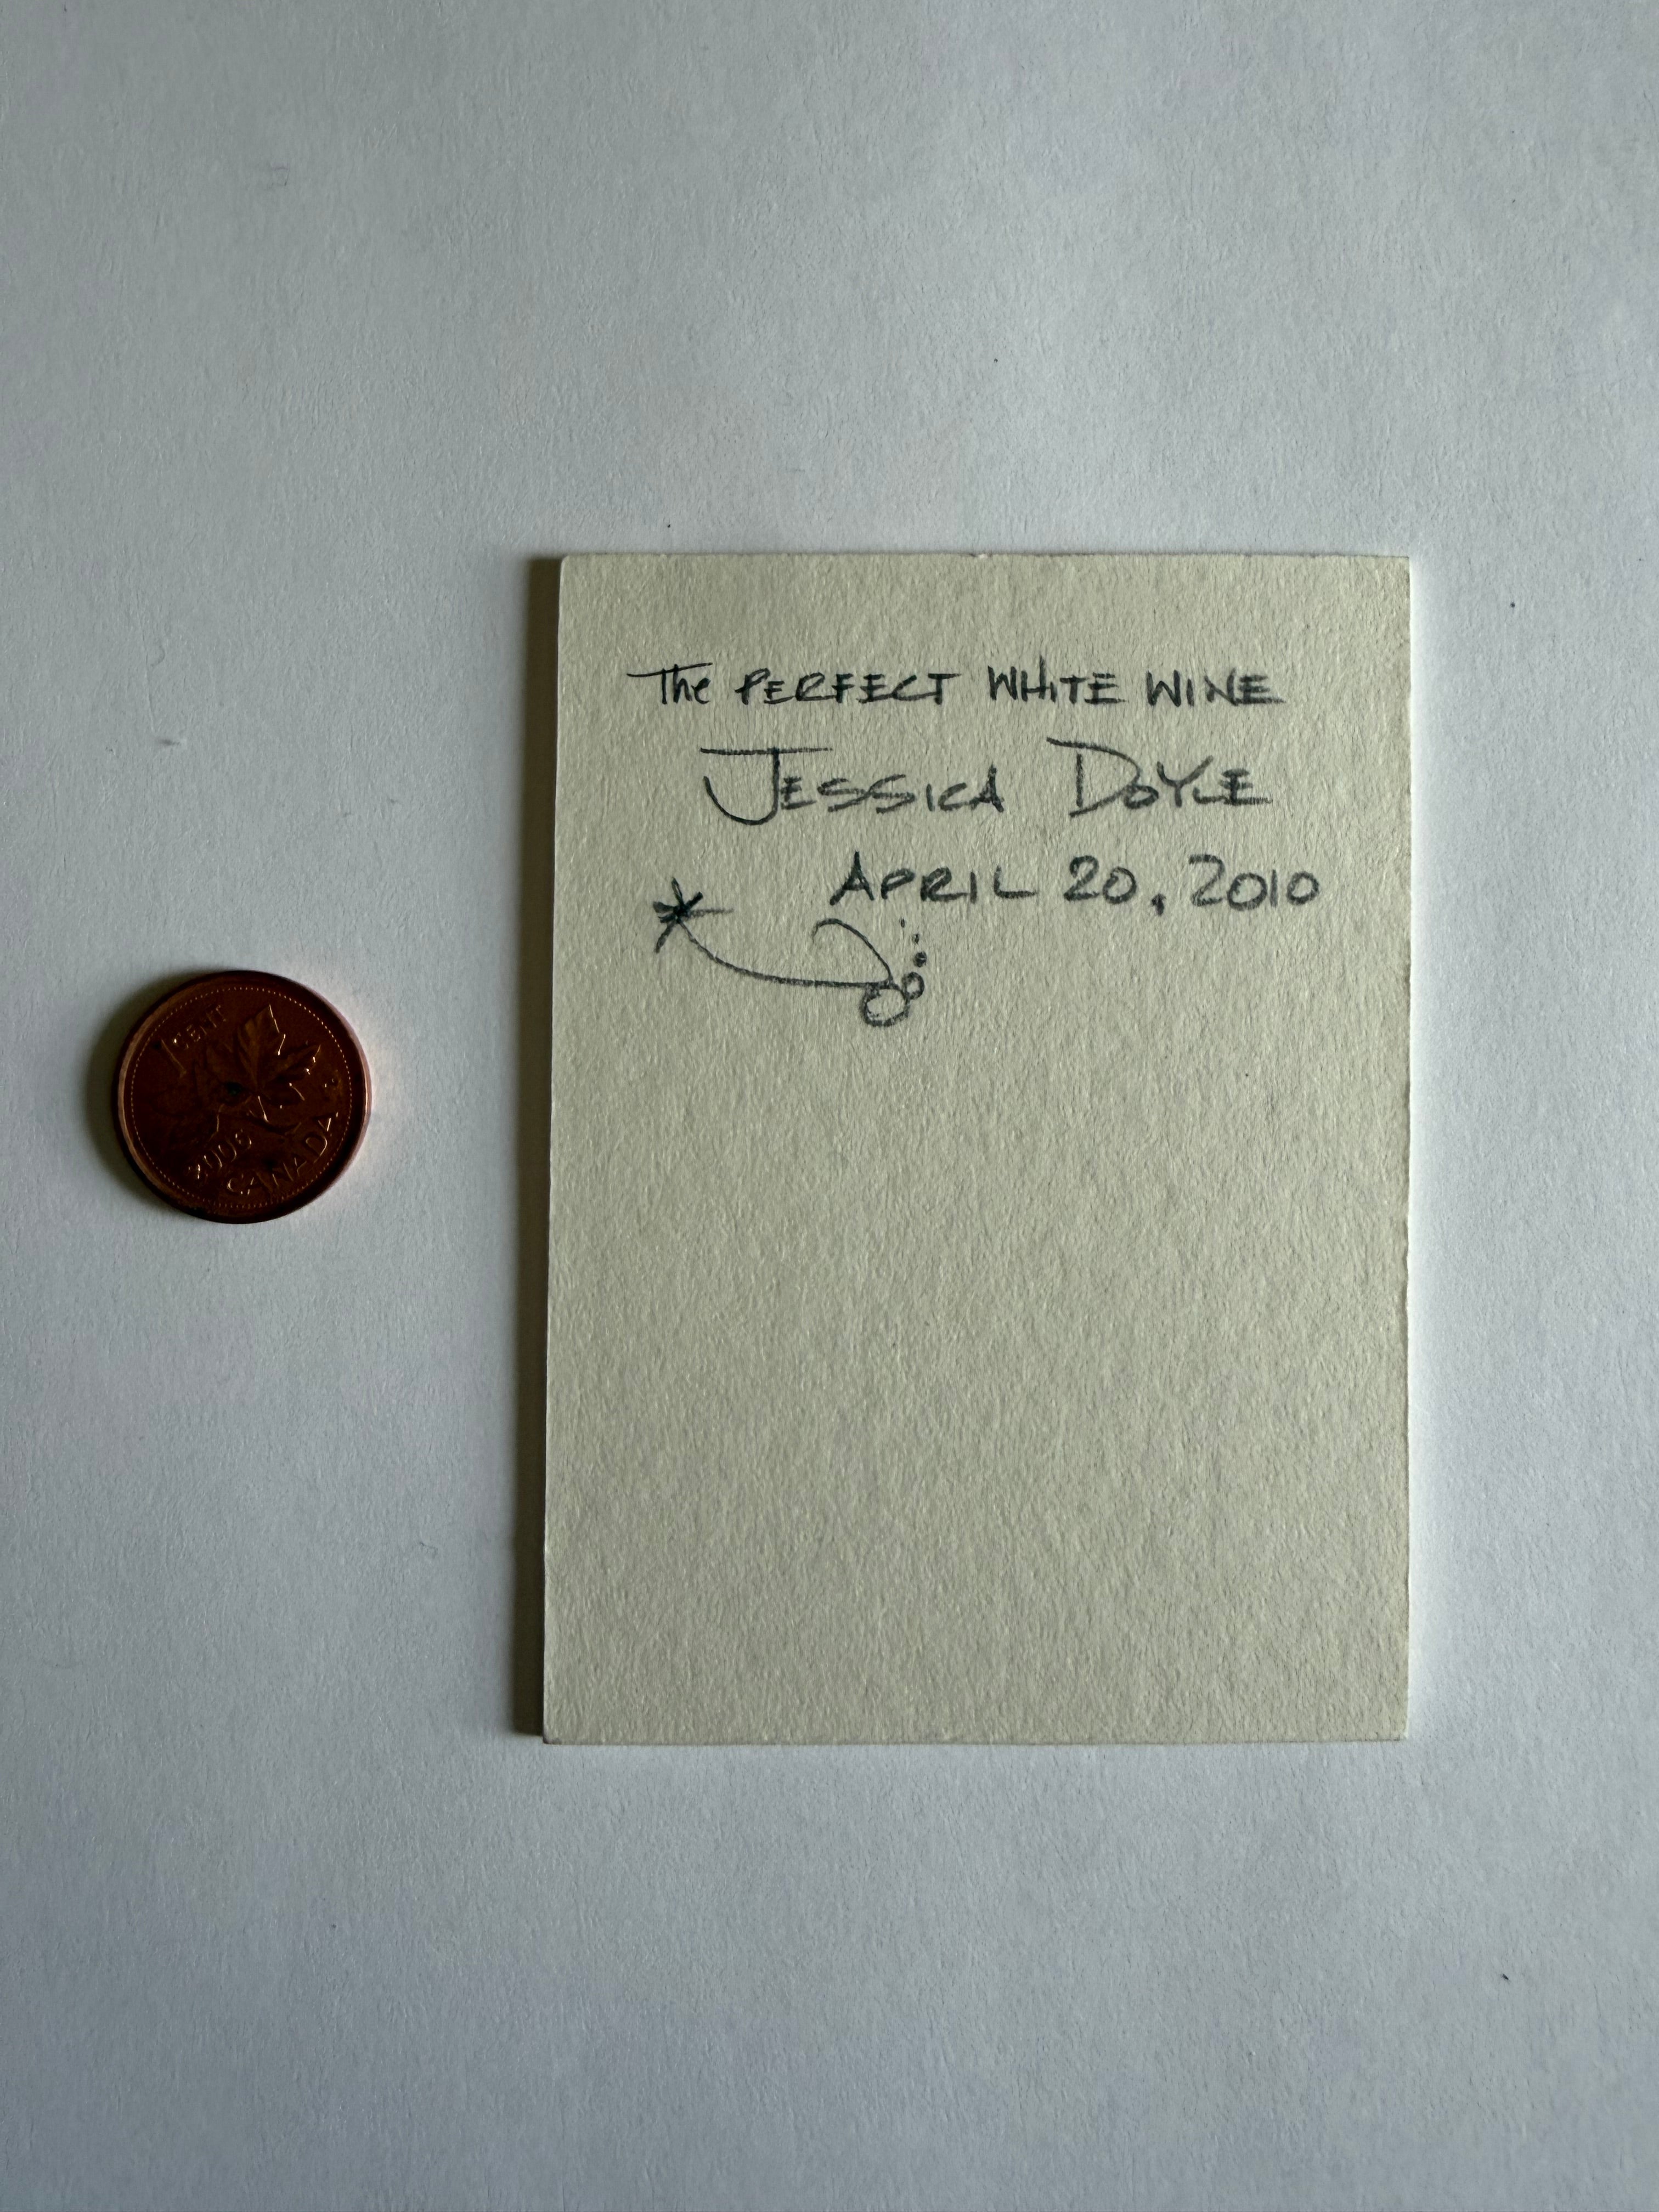 The PERFECT WHITE WINE
JESSICA DOYLE
APRIL 20, 2010
1 CENT
2006
CANADA